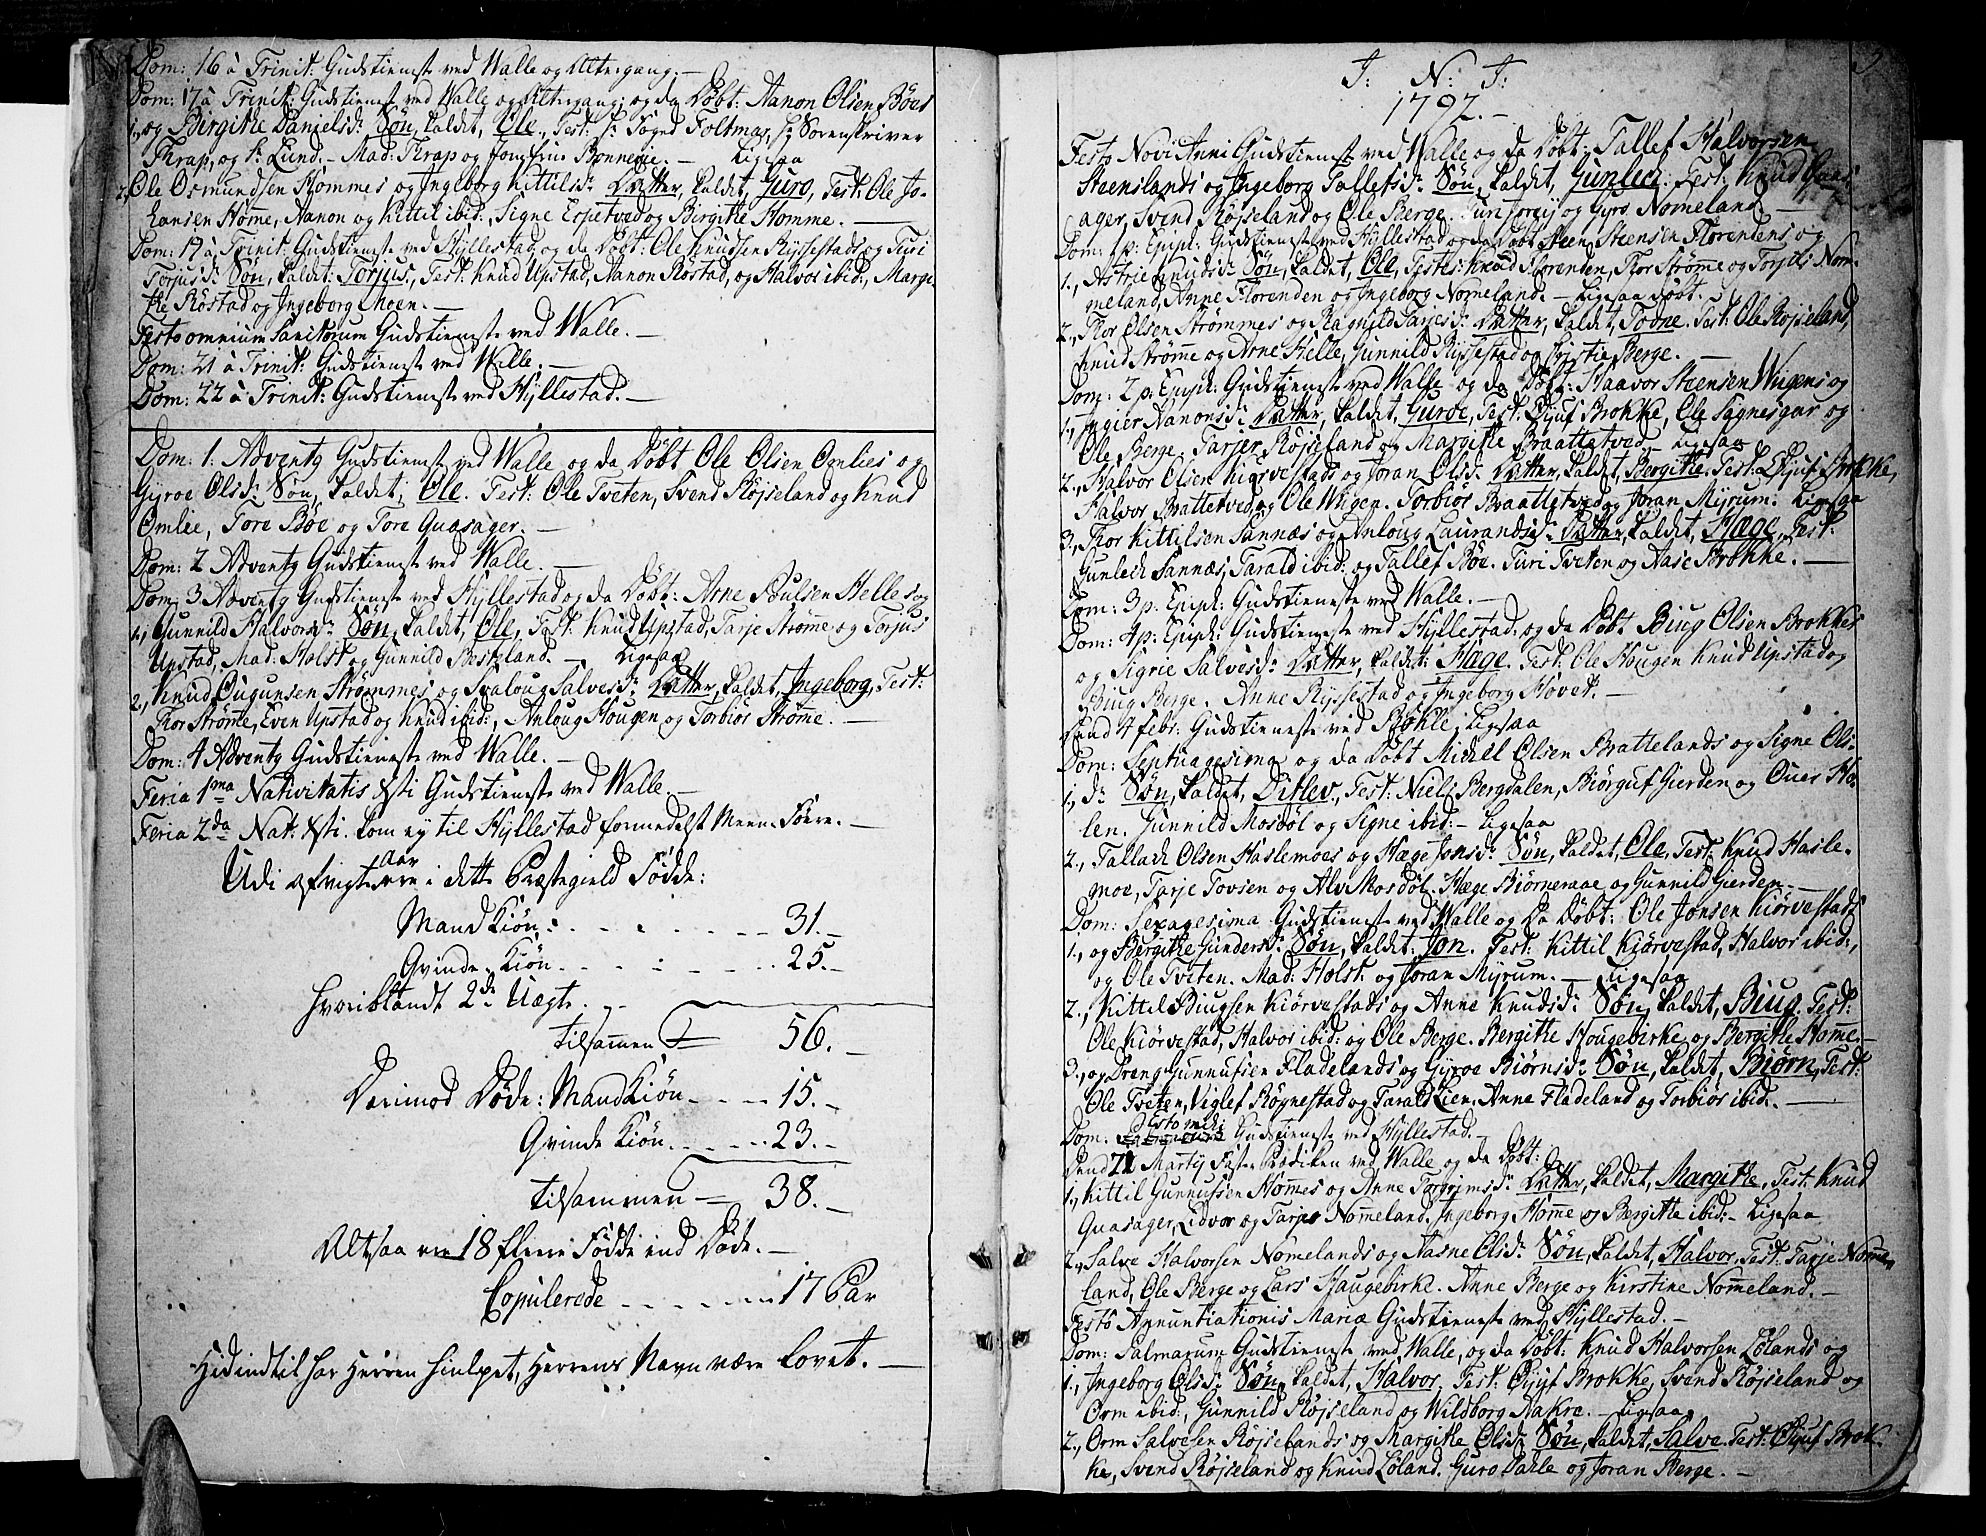 Dom: 16 à Trinit: Gudstieneste ved Walle og Altergang. —
Dom: 17 à Trinit: Gudstieneste ved Walle og Altergang; og da Døbt: Aanon Olsen Böes
1., og Bergithe Daniels d: Søn, kaldet, Ole., Test: Hr Foged Foltmar, Hr Sorenskriver
Thrap, og Hr Lund. — Mad: Thrap og Jomfrue Bonnevie. — Ligesaa
2, Ole Osmundsen Hommes og Ingeborg Kittils d: Datter, kaldet, Guro, Test: Ole Jo-
hansen Home, Aanon og Kittil ibid:, Signe Espetved og Birgithe Homme. —
Dom: 19 à Trinit: Gudstieneste ved Hyllestad og da Døbt: Ole Knudsen Ryssestads og Turi
Torjus d: Søn, kaldet: Torjus, Test: Knud Upstad, Aanon Rostad, og Halvor ibid:, Margi-
the Rostad og Ingeborg Moen. —
Festo omnium Sanctorum Gudstieneste ved Walle. —
Dom: 21 à Trinit: Gudstieneste ved Walle. —
Dom: 22 à Trinit: Gudstieneste ved Hyllestad. —
Dom: 1. Advents Gudstieneste ved Walle og da Døbt Ole Olsen Omlies og
Gyroe Ols d: Søn, kaldet; Ole. Test: Ole Tveten, Svend Røjseland og Knud
Omlie, Tore Böe og Tore Quasager. —
Dom: 2 Advents Gudstieneste ved Walle. —
Dom: 3 Advents Gudstieneste ved Hyllestad og da Döbt: Arne Poulsen Helles og
1., Gunnild Halvors d: Søn, kaldet, Ole, Test: Knud Upstad, Tarje Strøme og Torjus
Upstad, Mad: Holst og Gunnild Besteland. — Ligesaa
2, Knud Ougunsen Strømmes og Svaloug Salves d: Datter, kaldet, Ingeborg, Test:
Thor Strøme, Even Upstad og Knud ibid:, Anloug Hougen og Torbiør Strøme. —
Dom: 4 Advents Gudstieneste ved Walle. —
Feria 1ma Nativitatis Xsti Gudstieneste ved Walle. —
Feria 2da Nat: Xsti. kom ey til Hyllestad formedelst Meene Föere. —
Udi afvigte Aar ere i dette Præstegield Fødde:
Mand Kiøn: . . . . . 31. —
Qvinde Kiøn . . . . . 25. —
hvoriblandt 2de Uægte.
tilsammen = 56. —
Derimod Døde: Mand Kiøn . . . 15. —
Qvinde Kiøn . . . 23. —
tilsammen = 38. —
Altsaa ere 18 fleere Födde end Døde. —
Copulerede . . . . . 17 Par
Hidindtil har Herren hiulpet, Herrens Navn være Lovet. —
J: N: J:
1792. —
Festo Novi Anni Gudstieneste ved Walle og da Døbt: Tallef Halvorsen
Steenslands og Ingeborg Tallefs d: Søn, kaldet, Gunlech. Test: Knud
ager, Svend Røjseland og Ole Berge. og Gyro Nomeland —
Dom: 1 p: Epiph: Gudstieneste ved Hyllestad og da Døbt Steen Steensen Florendens og
1., Astrie Knuds d: Søn, kaldet, Ole, Testes: Knud Florenden, Thor Strøme og Torjus Nom-
meland, Anne Florenden og Ingeborg Nomeland. — Ligesaa døbt.
2., Thor Olsen Strømmes og Ragnild Tarjes d: Datter, kaldet, Todne. Test: Ole Røjseland,
Knud Strøme og Arne Helle, Gunnild Ryssestad og Christie Berge. —
Dom: 2 p: Epiph: Gudstieneste ved Walle og da Døbt: Haavor Steensen Wiigens og
1., Ingier Aanons d: Datter, kaldet, Guroe, Test: Eijuf Brokke, Ole Sagnesgar og
Ole Berge. Tarjer Røjseland og Margithe Braattetved. Ligesaa
2., Halvor Olsen Kiørvestads og Joran Ols d: Datter, kaldet, Bergithe. Test: Eijuf Brokke,
Halvor Brattetved, og Ole Wiigen. Torbiør Braattetved og Joran Myrum. Ligesaa
3., Thor Kittilsen Sannæs og Anloug Laurands d: Datter, kaldet, Hæge, Test:
Gunlech Sannæs, Tarald ibid: og Tallef Böe. Turi Tveten og Aase Brokke. —
Dom: 3 p: Epiph: Gudstieneste ved Walle. —
Dom: 4 p: Epiph: Gudstieneste ved Hyllestad, og da Døbt Biug Olsen Brokkes
og Sigrie Salves d: Datter, kaldet: Hæge. Test: Ole Hougen Knud Upstad og
Biug Berge. Anne Ryssestad og Ingeborg Hovet. —
4 Febr: Gudstieneste ved Bøkle. Ligesaa
Dom: Septuagesima og da Døbt Michel Olsen Brattelands og Signe Ols-
1., d: Søn, kaldet, Ditlev., Test: Niels Bergdalen, Biørguf Gierden og Over Ho-
len. Gunnild Mosdøl og Signe ibid: — Ligesaa
2., Tallach Olsen Haslemoes og Hæge Jons d: Søn, kaldet, Ole, Test: Knud Hasle-
moe, Tarje Tovsen og Alv Mosdøl. Hæge Biørnemae og Gunnild Gierden. —
Dom: Sexagesima Gudstieneste ved Walle og Da Døbt: Ole Jonsen Kiörvestads
1., og Bergithe Gunders d: Søn, kaldet: Jon. Test: Kittil Kiörvestad, Halvor ibid:,
og Ole Tveten. Mad: Holst og Joran Myrum. — Ligesaa
2., Kittil Biugsen Kiörvestads og Anne Knuds d: Søn, kaldet, Biug. Test:
Ole Kiörvestad, Halvor ibid: og Ole Berge. Bergithe Hougebirke og Bergithe Home. —
3., og Dreng Gunnufsen Fladelands og Gyroe Biørns d: Søn, kaldet, Biørn, Test:
Ole Tveten, Viglef Røgnestad og Tarald Lien. Anne Fladeland og Torbiör ibid:. —
Dom: Estomihi Gudstieneste ved Hyllestad. —
Martij Faste Prædiken ved Walle og da Døbt:
1., Kittil Gunnufsen Hommes og Anne Torgrims d: Datter, kaldet, Margithe, Test: Knud
Quasager, Lidvor og Tarje Nomeland. Ingeborg Home og Bergithe ibid: — Ligesaa
2., Salve Halvorsen Nomelands og Aasne Ols d: Søn, kaldet, Halvor. Test: Tarje Nome-
land, Ole Berge og Lars Haugebirke. Anne Berge og Kirstine Nomeland. —
Festo Annuntiationis Mariæ Gudstieneste ved Hyllestad. —
Dom: Palmarum Gudstieneste ved Walle, og da Døbt: Knud Halvorsen Lølands og
1., Ingeborg Ols d: Søn, kaldet, Halvor. Test: Eijuf Brokke, Svend Røjseland og
Orm ibid:, Gunnild Røjseland og Wildborg Aakre. — Ligesaa
2., Orm Salvesen Røjselands og Margithe Ols d: Søn, kaldet, Salve. Test: Eijuf Brok-
ke, Svend Røjseland og Knud Løland. Guro Dahle og Joran Berge. —